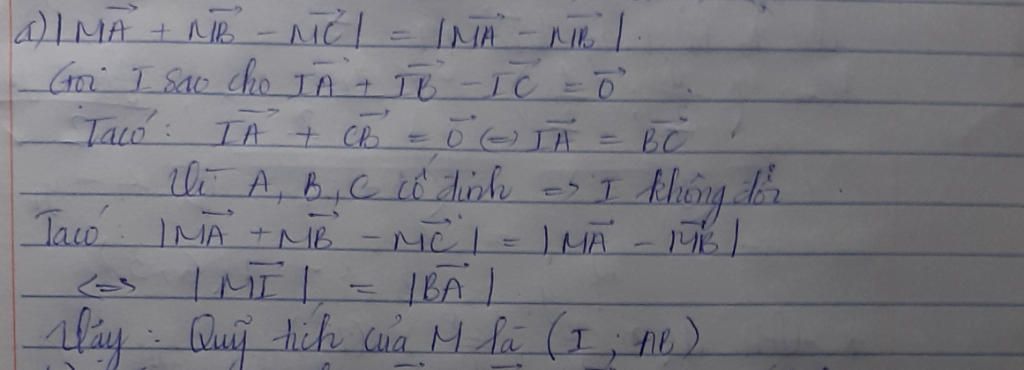 a) |MA→ + MB→ - MC→| = |MA→ - MB→|.
Gọi I sao cho IA→ + IB→ - IC→ = 0→
Ta có: IA→ + CB→ = 0→ <=> IA→ = BC→
Vì A, B, C cố định => I không đổi
Ta có: |MA→ + MB→ - MC→| = |MA→ - MB→|
<=> |MI→| = |BA→|
Vậy: Quỹ tích của M là (I; AB)